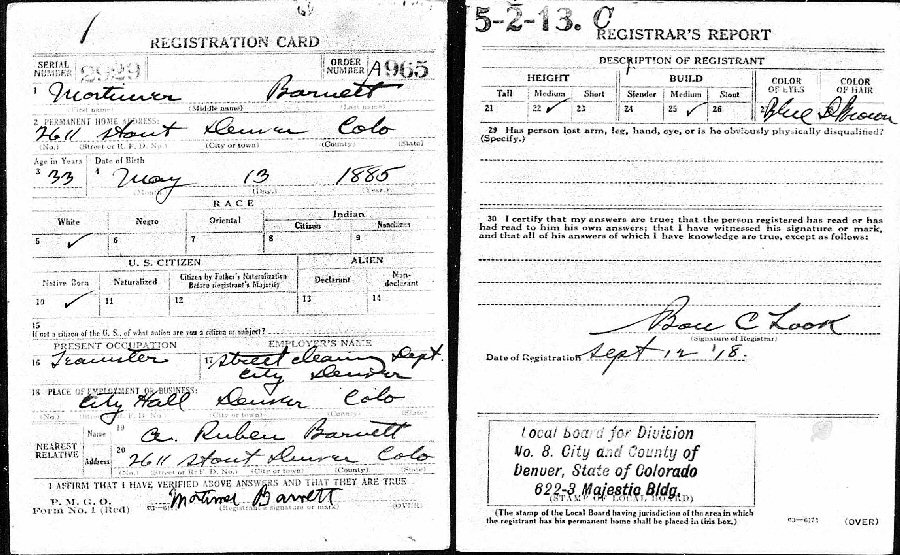 REGISTRATION CARD
SERIAL NUMBER 2929 ORDER NUMBER A965
1 Mortimer Barnett
(First name) (Middle name) (Last name)
2 PERMANENT HOME ADDRESS:
2611 Stout Denver Colo
(No.) (Street or R. F. D. No.) (City or town) (County) (State)
Age in Years Date of Birth
3 33 4 May 13 1885
(Month) (Day) (Year)
RACE
White Negro Oriental Indian
Citizen Noncitizen
5 ✓ 6 7 8 9
U. S. CITIZEN ALIEN
Native Born Naturalized Citizen by Father's Naturalization Before Registrant's Majority Declarant Non-declarant
10 ✓ 11 12 13 14
15
If not a citizen of the U. S., of what nation are you a citizen or subject?
PRESENT OCCUPATION EMPLOYER'S NAME
16 Teamster 17 Street Cleaning Dept.
City Denver
18 PLACE OF EMPLOYMENT OR BUSINESS:
City Hall Denver Colo
(No.) (Street or R. F. D. No.) (City or town) (County) (State)
NEAREST RELATIVE
Name 19 Ruben Barnett
Address 20 2611 Stout Denver Colo
(No.) (Street or R. F. D. No.) (City or town) (County) (State)
I AFFIRM THAT I HAVE VERIFIED ABOVE ANSWERS AND THAT THEY ARE TRUE
P. M. G. O.
Form No. 1 (Red) Mortimer Barnett
(Registrant's signature or mark) (OVER)
5-2-13. C
REGISTRAR'S REPORT
DESCRIPTION OF REGISTRANT
HEIGHT BUILD COLOR OF EYES COLOR OF HAIR
Tall Medium Short Slender Medium Stout
21 22 ✓ 23 24 25 ✓ 26 27 Blue D Brown
29 Has person lost arm, leg, hand, eye, or is he obviously physically disqualified?
(Specify.)
30 I certify that my answers are true; that the person registered has read or has
had read to him his own answers; that I have witnessed his signature or mark,
and that all of his answers of which I have knowledge are true, except as follows:
C Look
(Signature of Registrar)
Date of Registration Sept 12 '18.
Local board for Division
No. 8. City and County of
Denver, State of Colorado
622-3 Majestic Bldg.
(STAMP OF LOCAL BOARD)
(The stamp of the Local Board having jurisdiction of the area in which
the registrant has his permanent home shall be placed in this box.)
03-6171 (OVER)